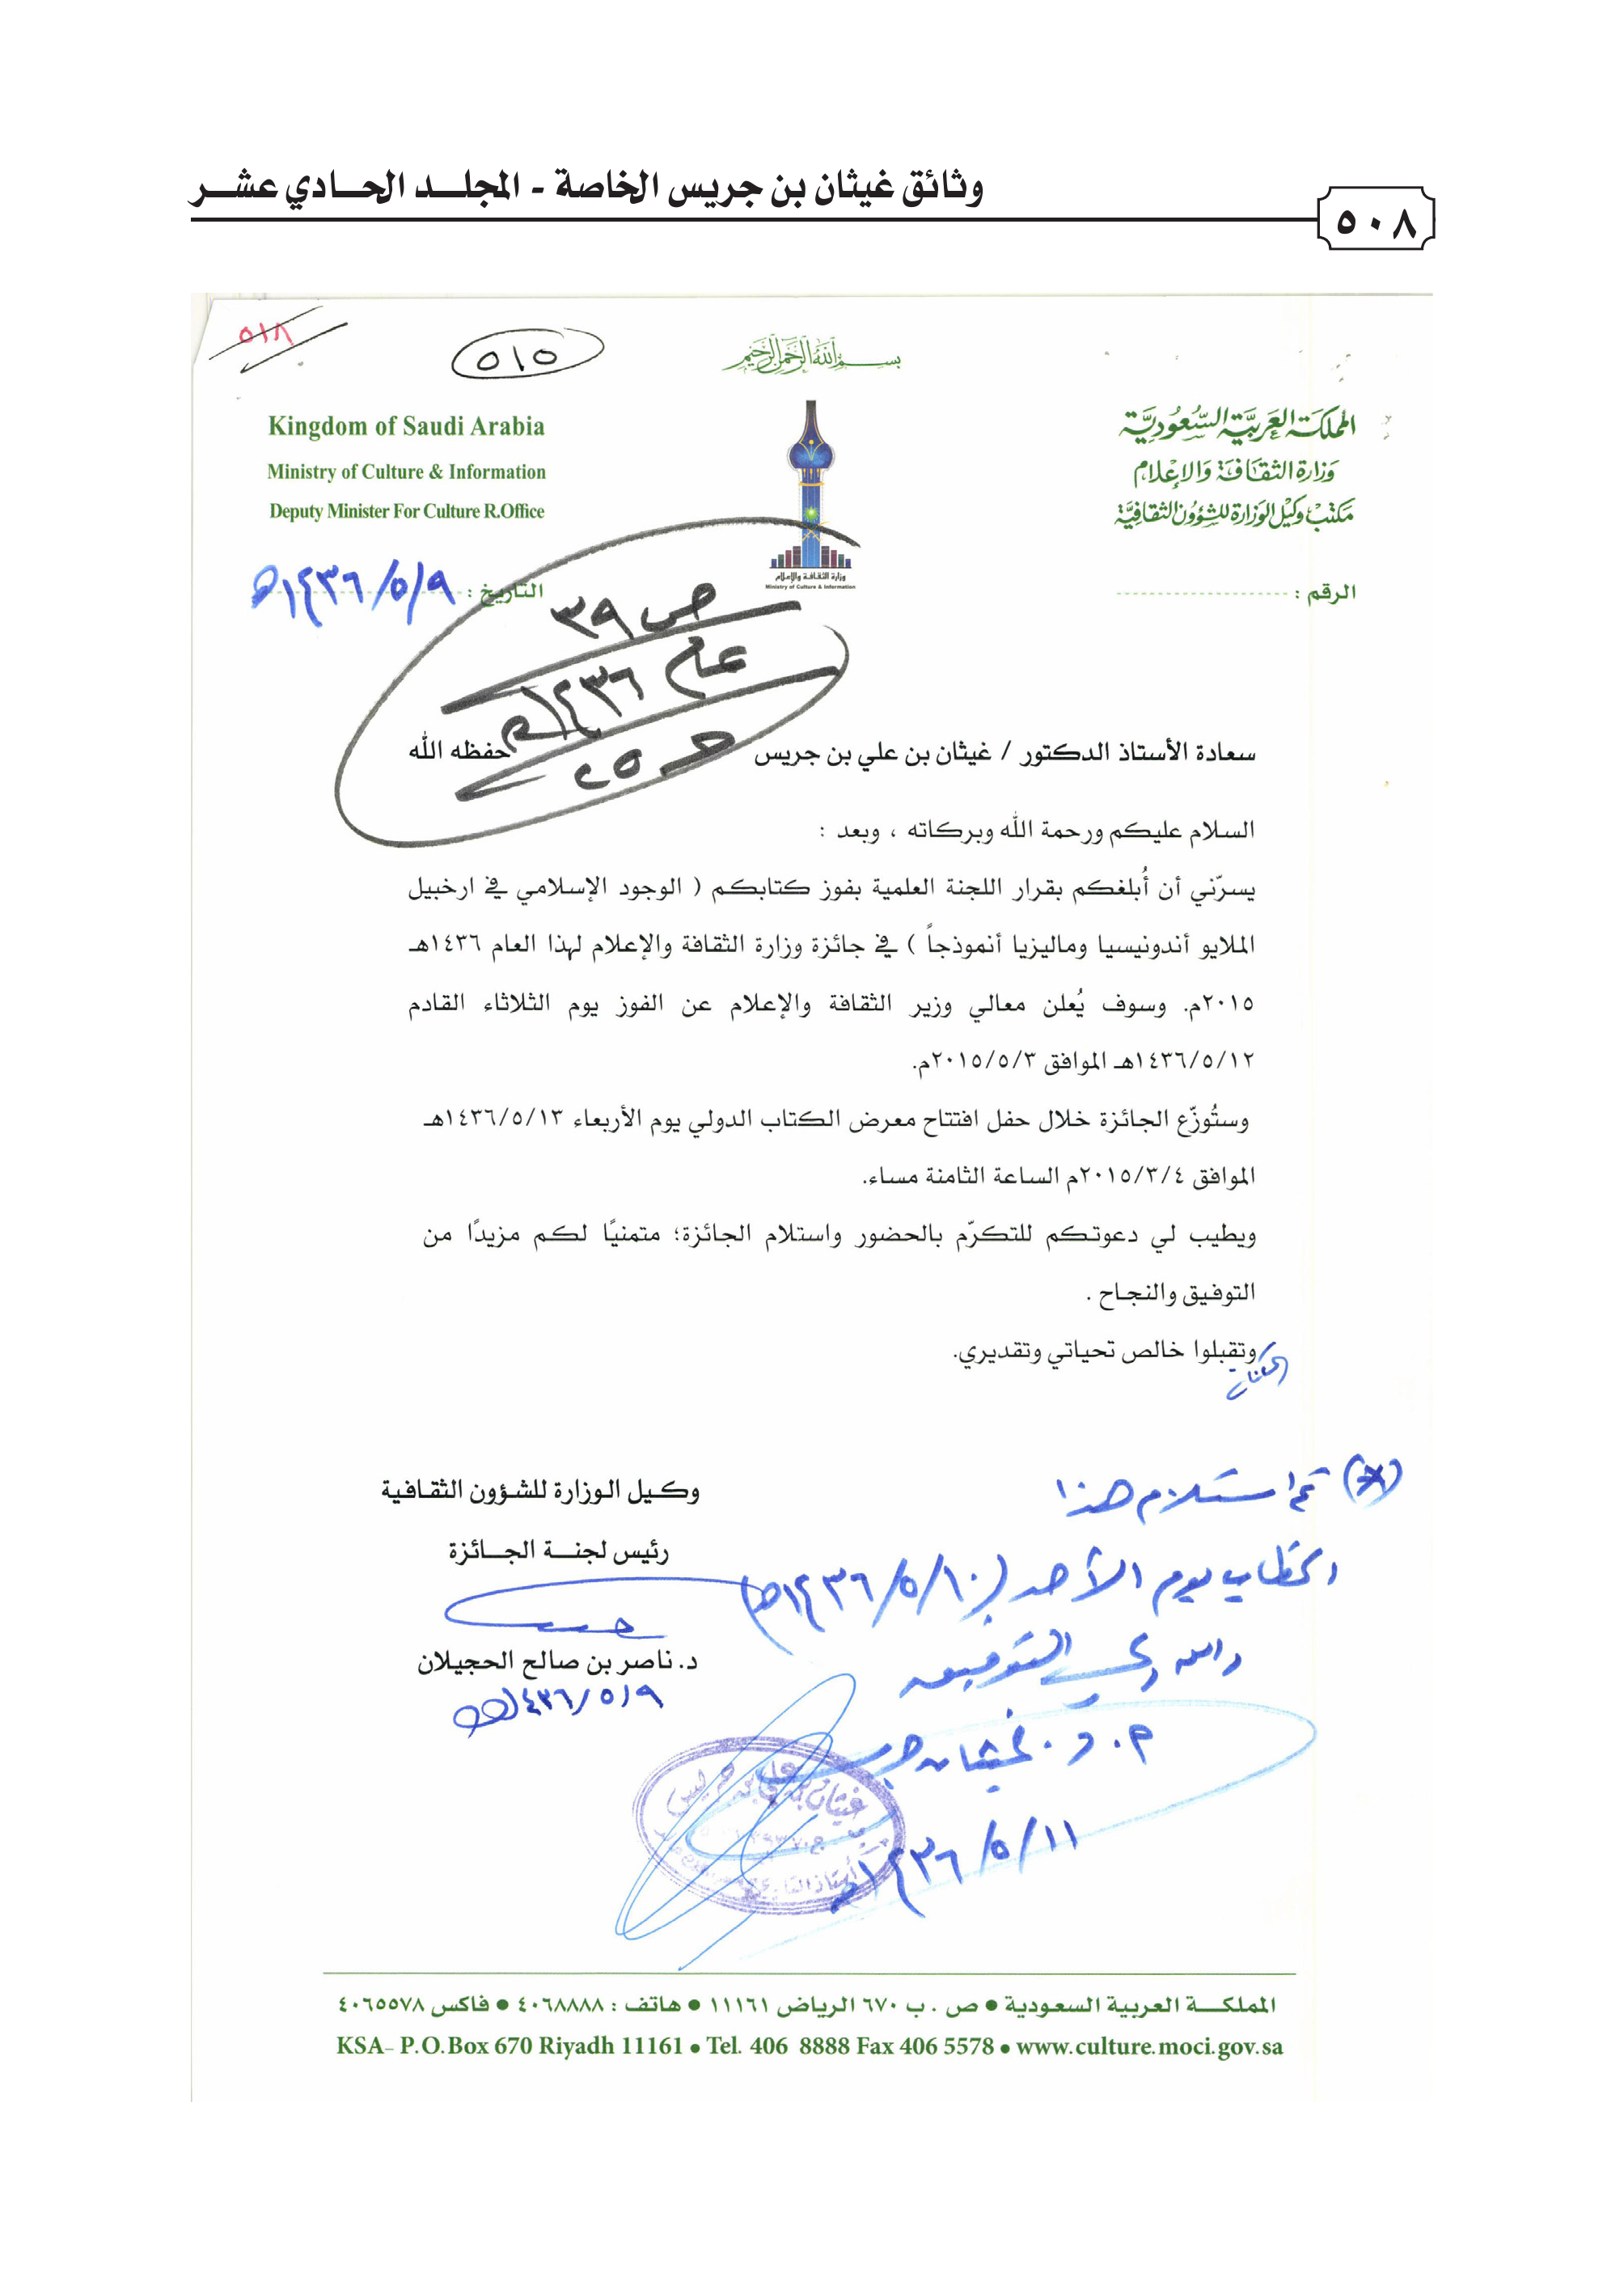 وثائق غيثان بن جريس الخاصة - المجلـــد الحـــادي عشـــر
٥٠٨
٥١٨
٥١٥
بسم الله الرحمن الرحيم
المملكة العربية السعودية
وزارة الثقافة والإعلام
مكتب وكيل الوزارة للشؤون الثقافية
Kingdom of Saudi Arabia
Ministry of Culture & Information
Deputy Minister For Culture R.Office
وزارة الثقافة والإعلام
Ministry of Culture & Information
الرقم :
التاريخ : ١٤٣٦/٥/٩هـ
ص ٣٩
عام ١٤٣٦هـ
حـ ٢٥
سعادة الأستاذ الدكتور / غيثان بن علي بن جريس حفظه الله
السلام عليكم ورحمة الله وبركاته ، وبعد :
يسرّني أن أُبلغكم بقرار اللجنة العلمية بفوز كتابكم ( الوجود الإسلامي في ارخبيل
الملايو أندونيسيا وماليزيا أنموذجاً ) في جائزة وزارة الثقافة والإعلام لهذا العام ١٤٣٦هـ
٢٠١٥م. وسوف يُعلن معالي وزير الثقافة والإعلام عن الفوز يوم الثلاثاء القادم
١٤٣٦/٥/١٢هـ الموافق ٢٠١٥/٥/٣م.
وستُوزّع الجائزة خلال حفل افتتاح معرض الكتاب الدولي يوم الأربعاء ١٤٣٦/٥/١٣هـ
الموافق ٢٠١٥/٣/٤م الساعة الثامنة مساء.
ويطيب لي دعوتكم للتكرّم بالحضور واستلام الجائزة؛ متمنيًا لكم مزيدًا من
التوفيق والنجاح .
وتقبلوا خالص تحياتي وتقديري.
وكـيل الـوزارة للشـؤون الثقـافية
رئيس لجنـــة الجـــائزة
د. ناصر بن صالح الحجيلان
١٤٣٦/٥/٩هـ
(*) تم استلام هذا
الخطاب يوم الأحد (١٤٣٦/٥/١٠هـ)
والله ولي التوفيق
أ.د. غيثان جريس
١٤٣٦/٥/١١هـ
غيثان بن علي بن جريس
أستاذ التاريخ
المملكـــة العربية السعودية ● ص . ب ٦٧٠ الرياض ١١١٦١ ● هاتف : ٤٠٦٨٨٨٨ ● فاكس ٤٠٦٥٥٧٨
KSA– P.O.Box 670 Riyadh 11161 ● Tel. 406 8888 Fax 406 5578 ● www.culture.moci.gov.sa